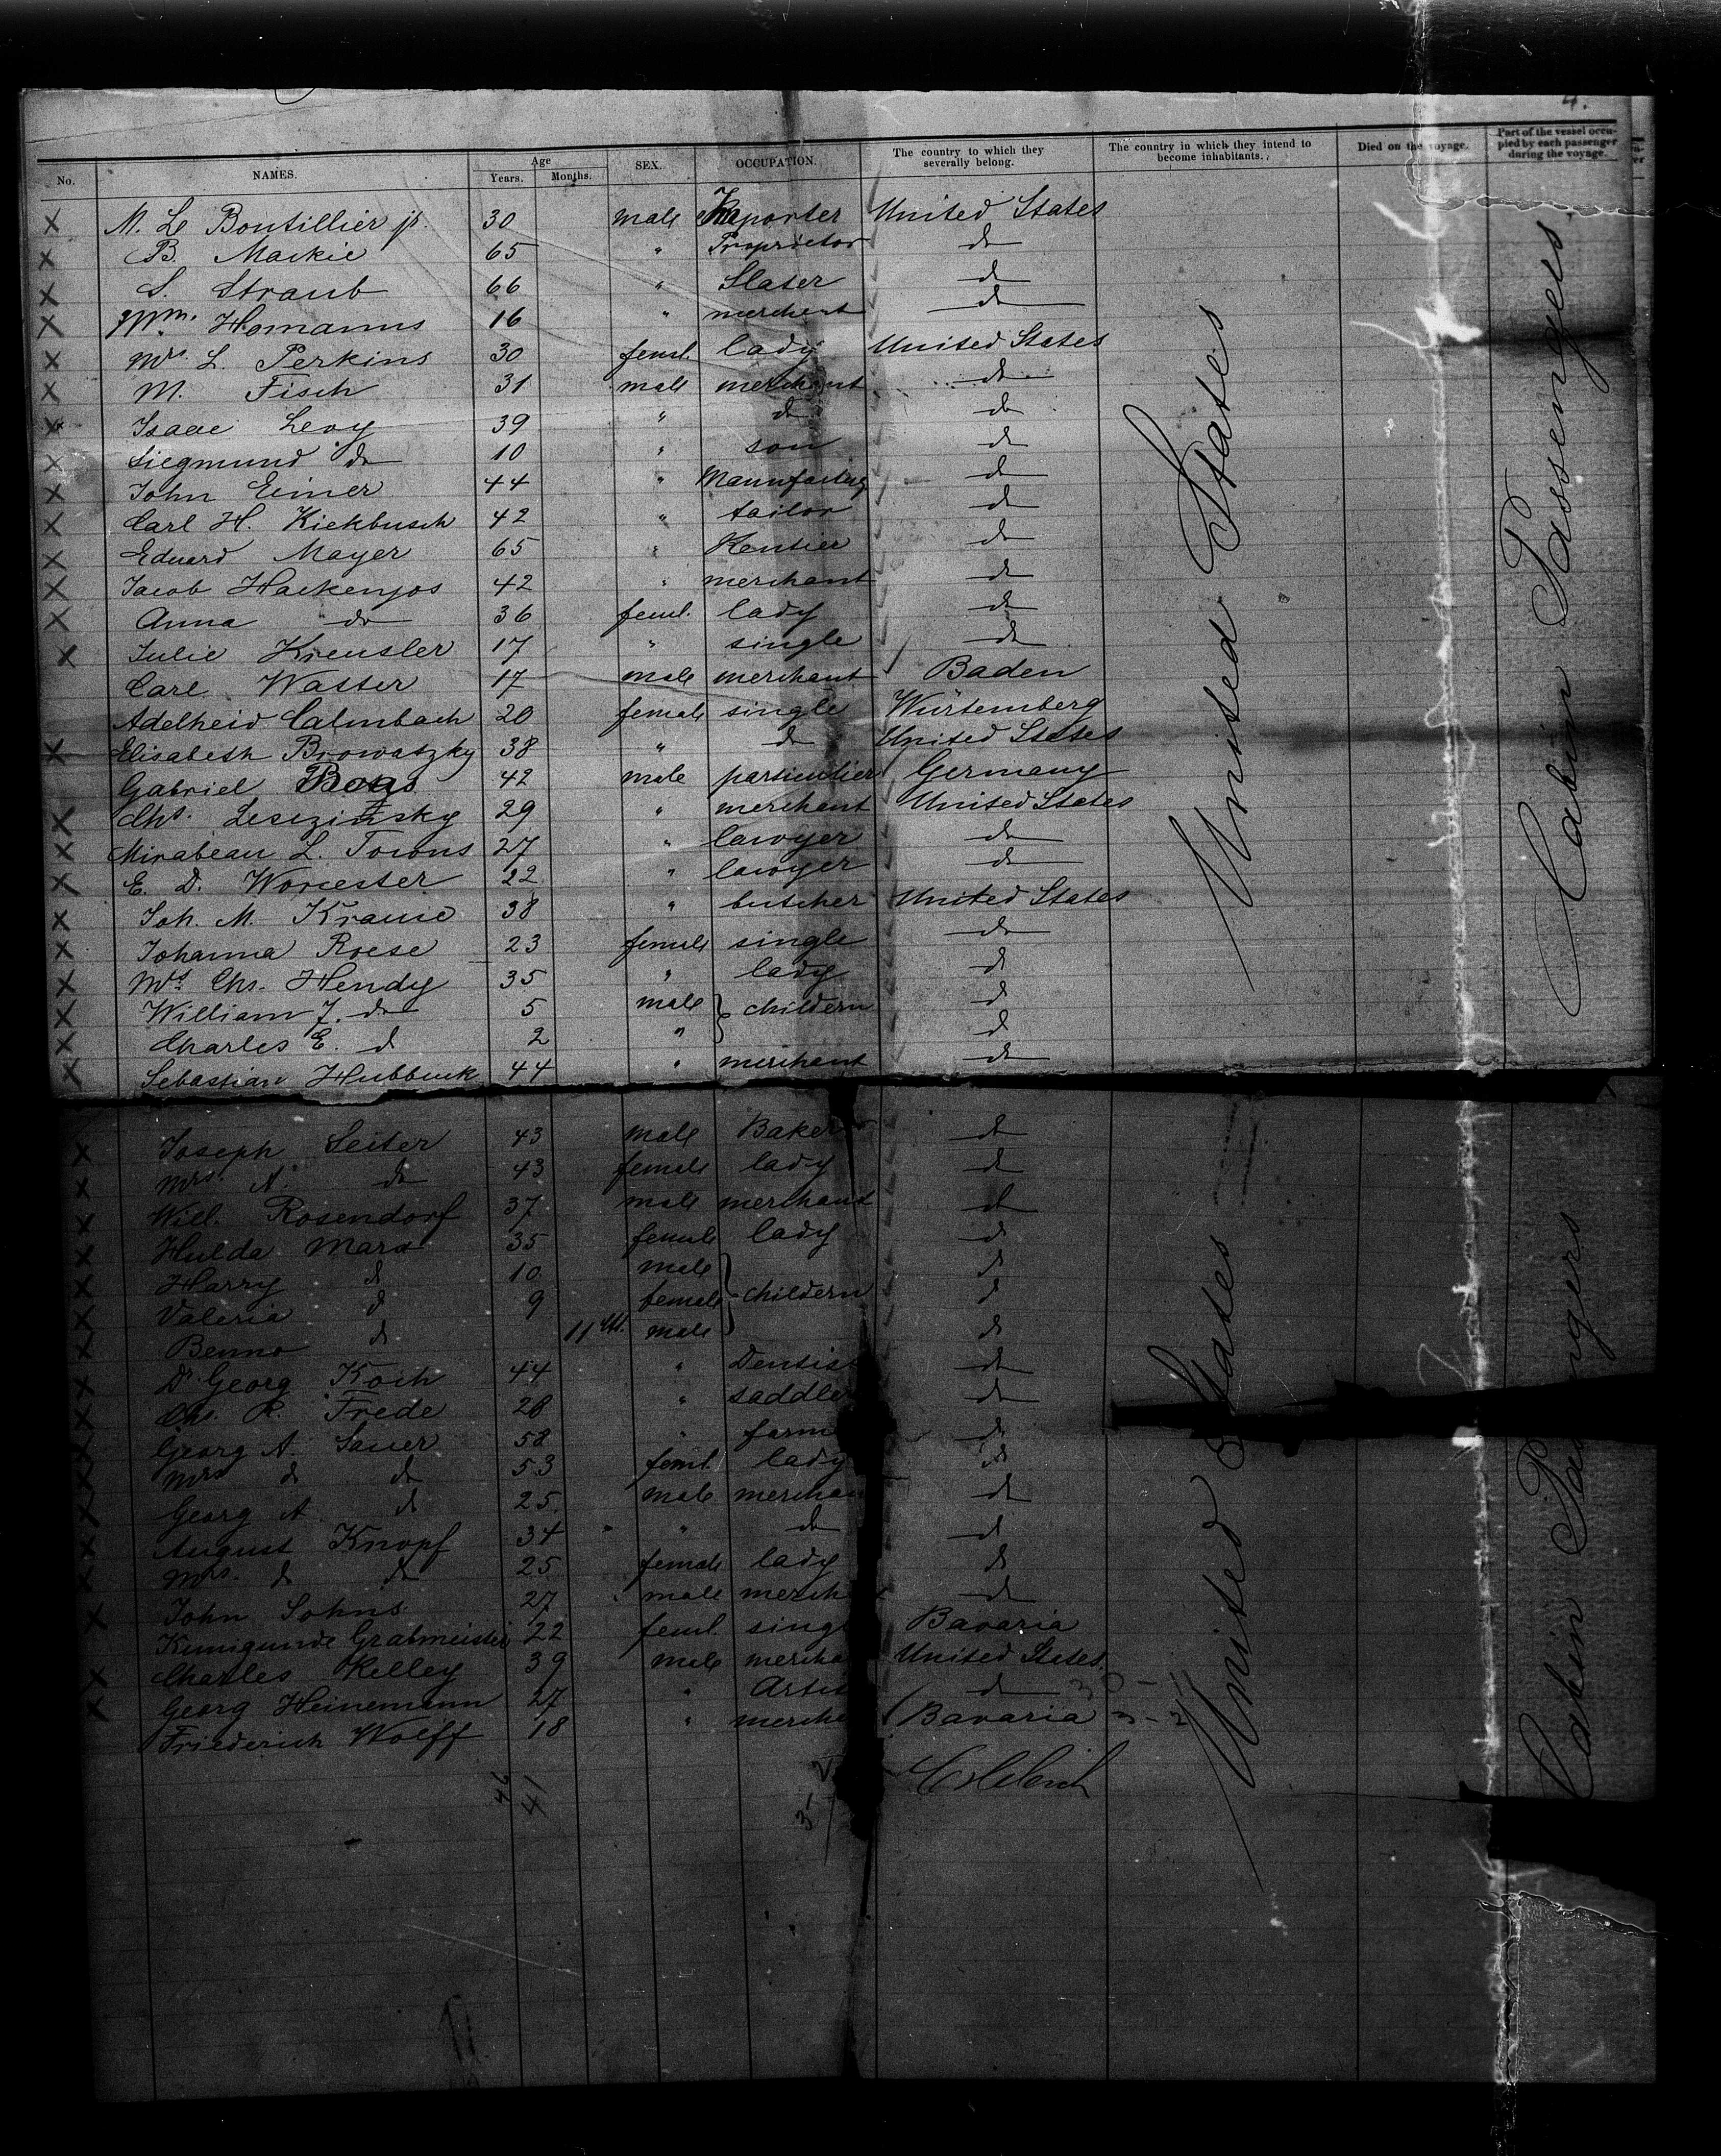 4.
No. NAMES. Age Years. Months. SEX. OCCUPATION. The country to which they severally belong. The country in which they intend to become inhabitants. Died on the voyage. Part of the vessel occupied by each passenger during the voyage.
X M. Le Boutillier jr. 30 male Importer United States
X B. Mackie 65 " Proprietor do
X S. Straub 66 " Slater do
X Wm. Homanns 16 " merchent do
X Mrs L. Perkins 30 feml. lady United States
X M. Fisch 31 male merchant do
X Isaac Levy 39 " do do
X Siegmund do 10 " son do
X John Eimer 44 " do
X Carl H. Kiekbusch 42 " tailor do
X Eduard Mayer 65 " Rentier do
X Jacob Hackenjos 42 " merchant do
X Anna do 36 feml. lady do
X Julie Kreusler 17 " single do
Carl Wasser 17 male merchant Baden
Adelheid Calmbach 20 female single Würtemberg
X Elisabeth Browatzky 38 " do United States
Gabriel Boas 42 male particulier Germany
X Chs. Leszinsky 29 " merchant United States
X Mirabeau L. Towns 27 " lawyer do
X E. D. Worcester 22 " lawyer do
X Joh. M. Krauie 38 " butcher United States
X Johanna Roese 23 female single do
X Mrs. Chs. Hendy 35 " lady do
X William J. do 5 male childern do
X Charles E. do 2 " do
X Sebastian Hubbuck 44 " merchant do
X Joseph Seiter 43 male Baker do
X Mrs. A. do 43 female lady do
X Will. Rosendorf 37 male merchant do
X Hulda Marx 35 female lady do
X Harry do 10 male do
X Valeria do 9 female childern do
X Benno do 11 Mt. male do
X Dr Georg Koch 44 " Dentist do
X Chs. R. Frede 28 " saddler do
X Georg A. Sauer 58 " farm do
X Mrs do do 53 feml. lady do
X Georg A. do 25 male merchan do
X August Knopf 34 " do do
X Mrs. do do 25 female lady do
X John Sohns 27 male merch do
Kunigunde Grabmeister 22 feml. sing Bavaria
X Charles Kelley 39 male mercha United States
X Georg Heinemann 27 " Artis do
Friederich Wolff 18 " mercha Bavaria
46 41
United States
Cabin Passengers
United States
Cabin Passengers